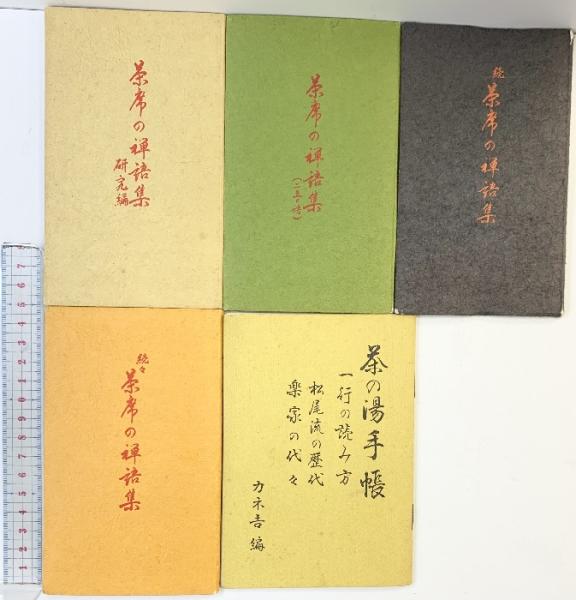 茶席の禅語集
研究編
茶席の禅語集
続
茶席の禅語集
続々
茶席の禅語集
茶の湯手帳
一行の読み方
松尾流の歴代
楽家の代々
カネ吉編